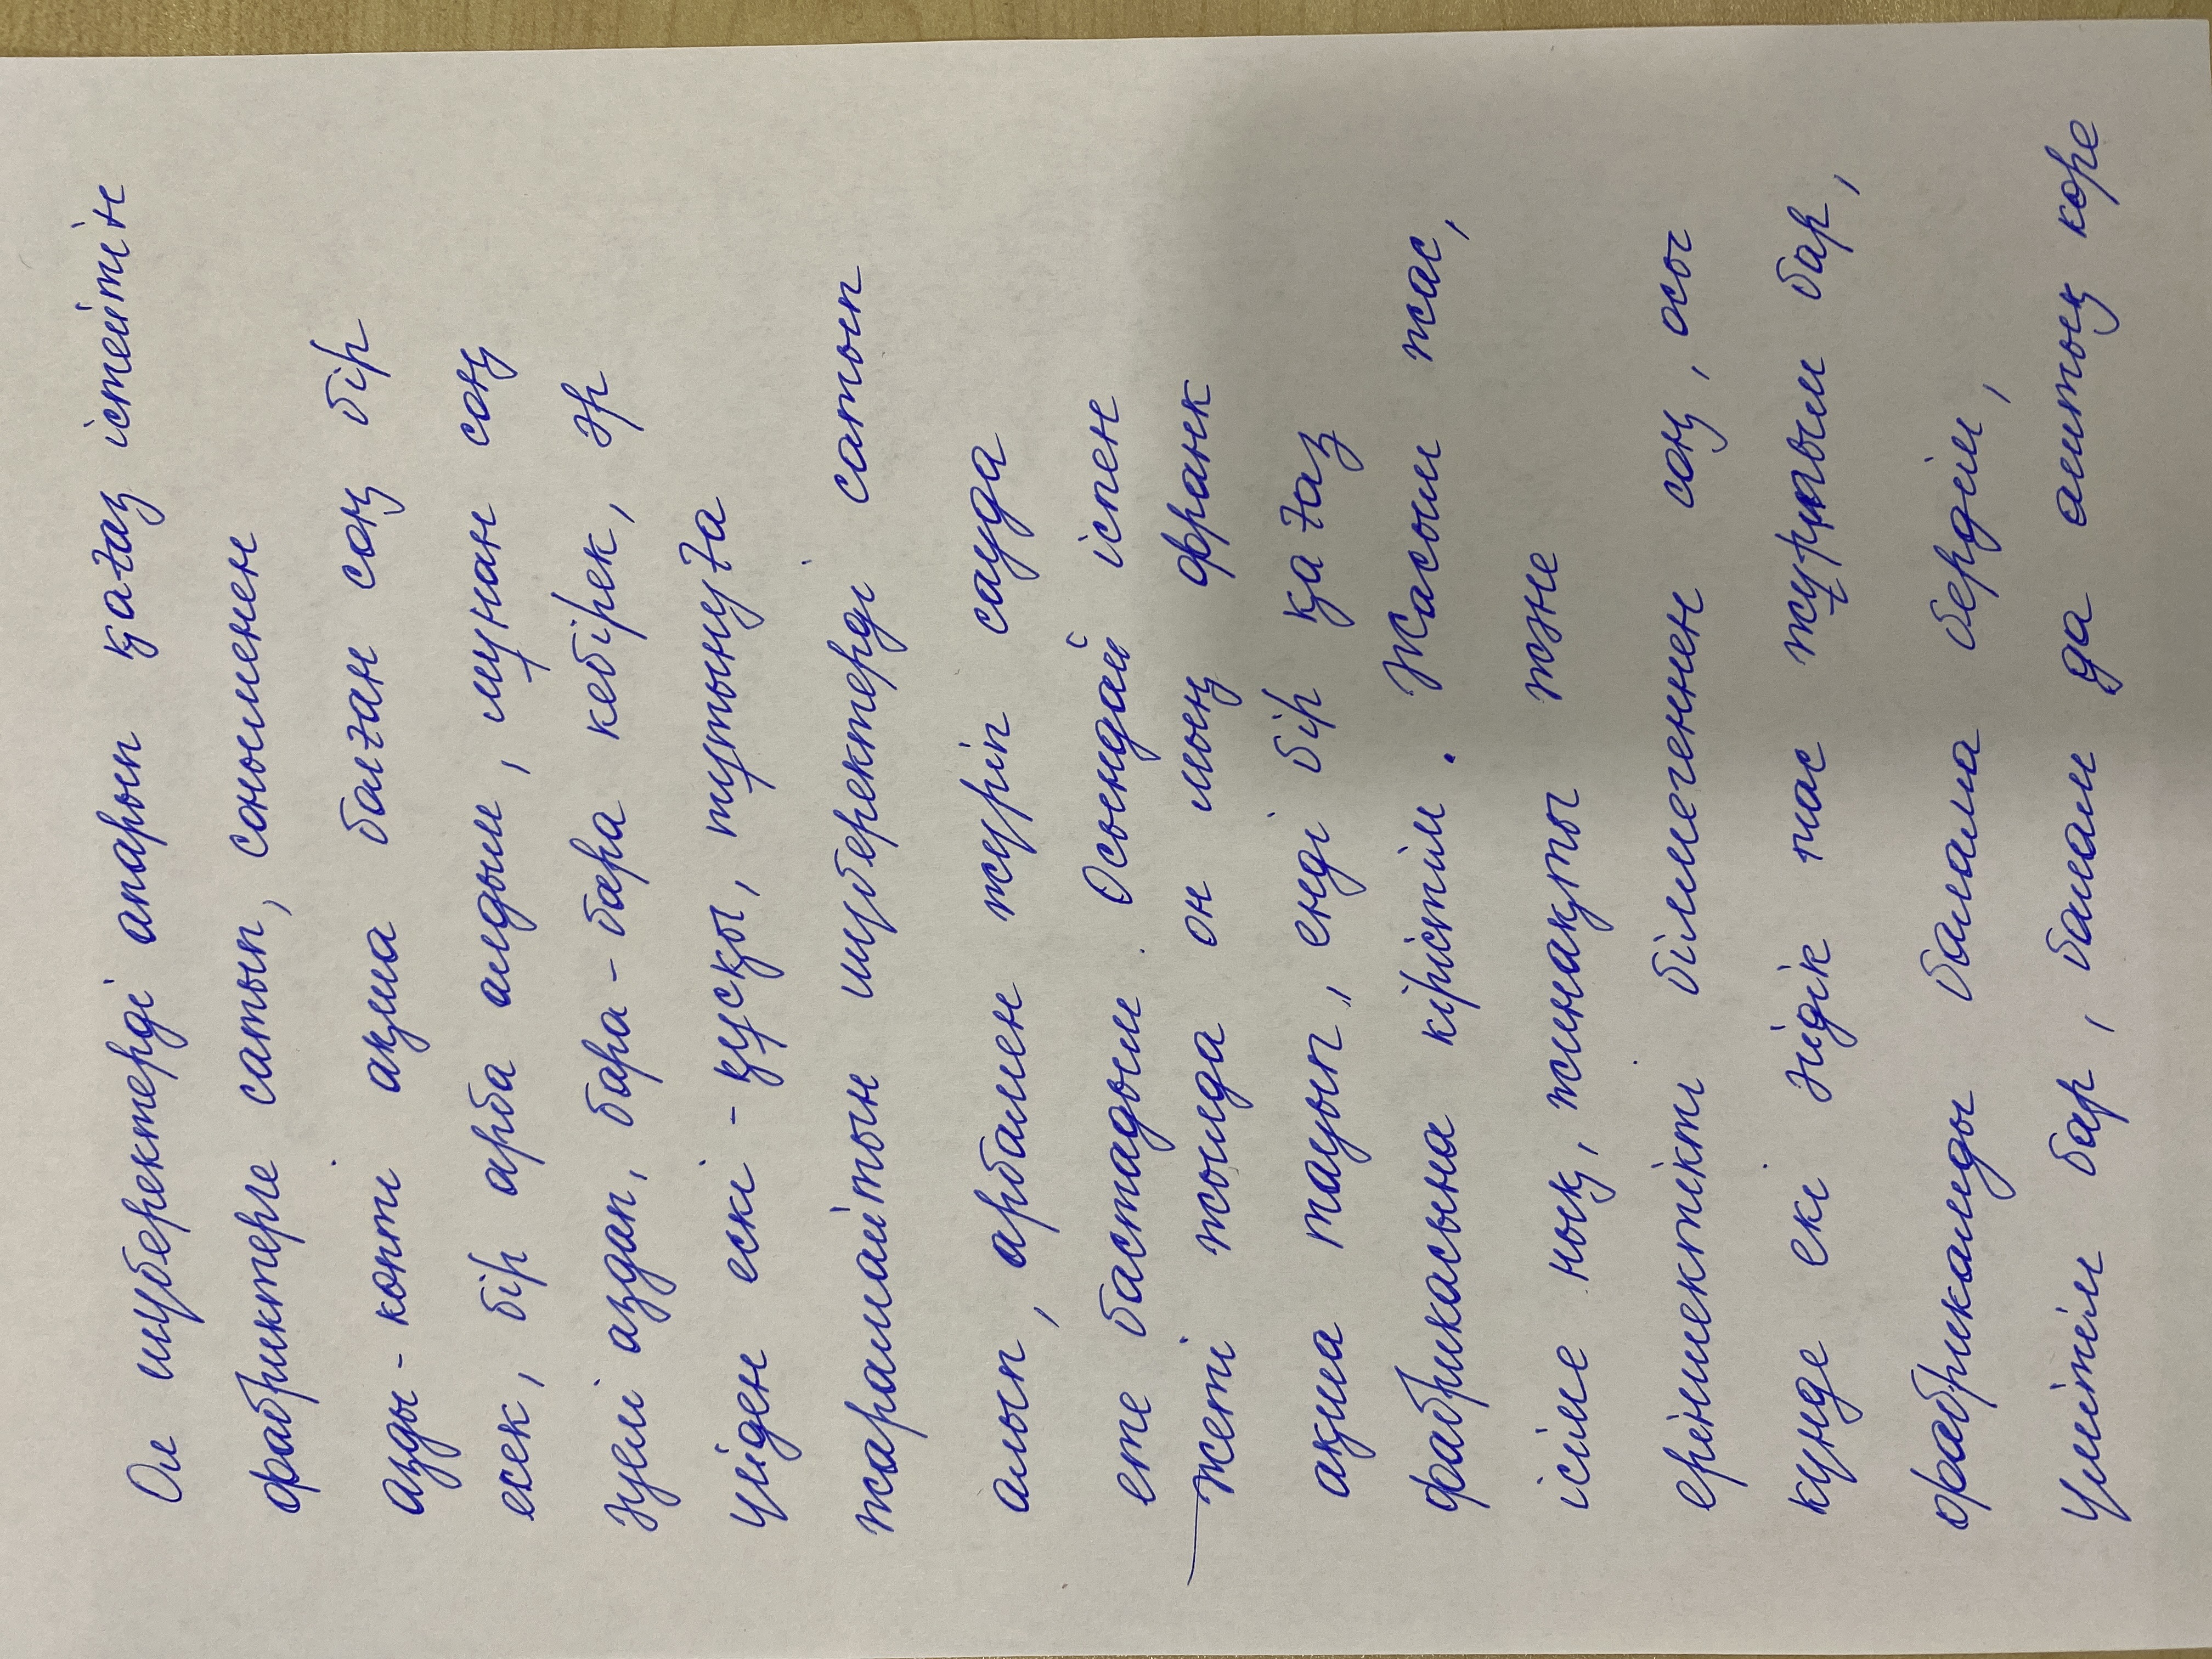 Ол шүберектерді апарып қағаз істейтін
фабриктерге сатып, соныменен
азды-көпті ақша болған соң бір
есек, бір арба алдым, мұнан соң
әуелі аздап, бара-бара көбірек, әр
үйден ескі-құсқы, тұтынуға
жарамайтын шүберектерді сатып
алып, арбамен жүріп сауда
ете бастадым. Осындай іспен
жеті жылда он мың франк
ақша тауып, енді бір қағаз
фабрикасына кірістім. Жасым жас,
ісіме нық, жинақты және
еріншектікті білмегеннен соң, осы
күнде екі әйдік тас жұртым бар,
фабрикамды балама бердім,
үмітім бар, балам да аштық көре